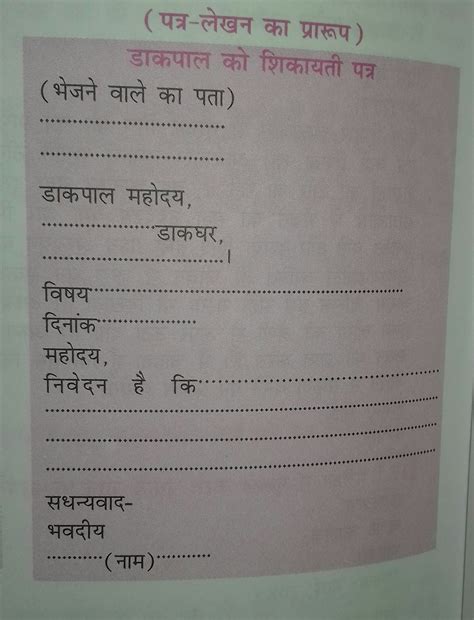 (पत्र-लेखन का प्रारूप)
डाकपाल को शिकायती पत्र
(भेजने वाले का पता)
........................................
........................................
डाकपाल महोदय,
........................डाकघर,
........................................।
विषय............................................................
दिनांक....................
महोदय,
निवेदन है कि................................................
................................................................................
................................................................................
................................................................................
सधन्यवाद-
भवदीय
...........(नाम)...........